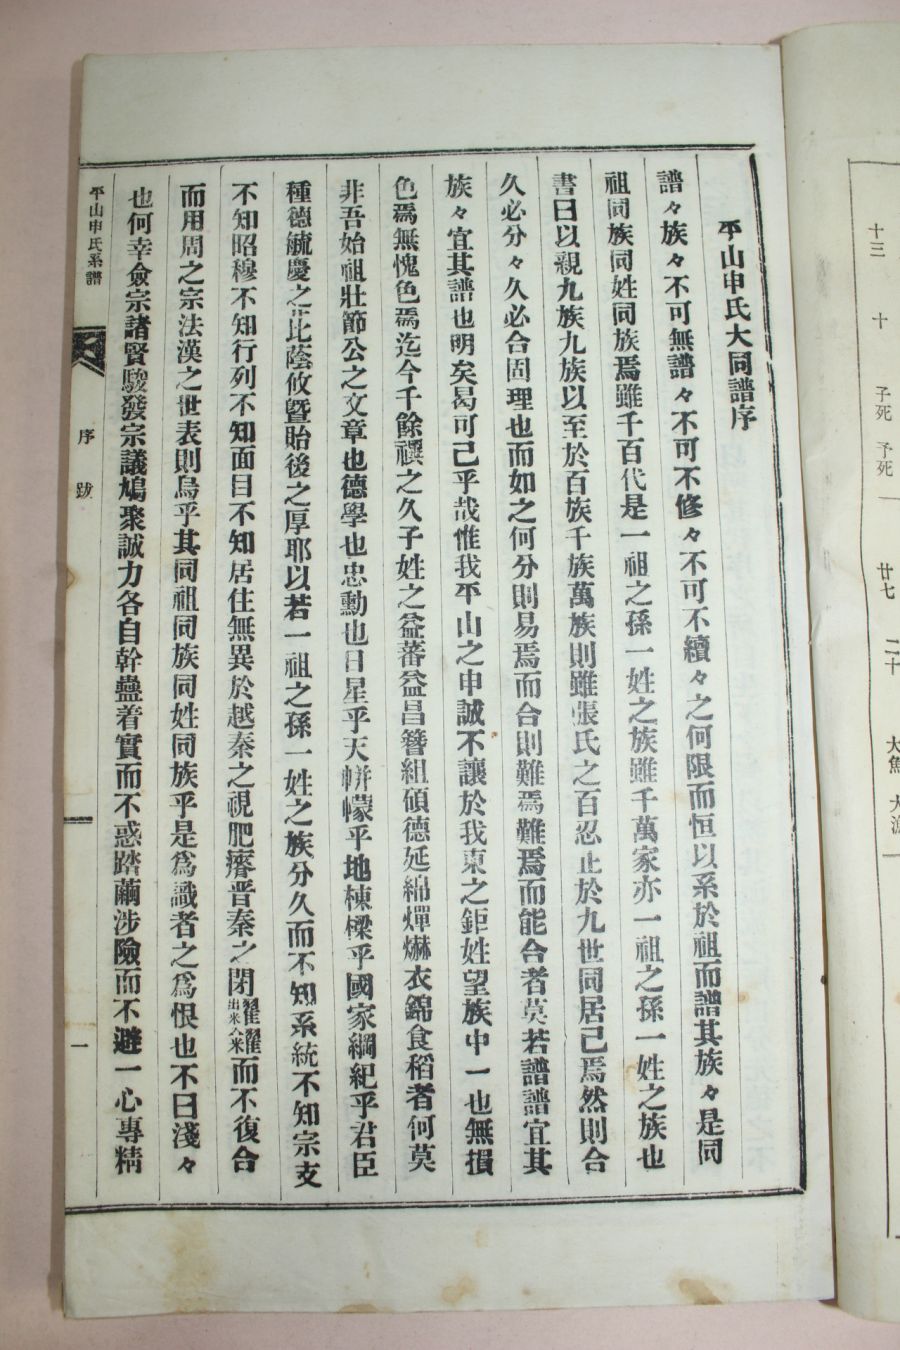 平山申氏大同譜序
譜々族々不可無譜々不可不修々不可不續々之何限而恒以系於祖而譜其族々是同
祖同族同姓同族焉雖千百代是一祖之孫一姓之族雖千萬家亦一祖之孫一姓之族也
書曰以親九族九族以至於百族千族萬族則雖張氏之百忍止於九世同居已焉然則合
久必分々久必合固理也而如之何分則易焉而合則難焉難焉而能合者莫若譜譜宜其
族々宜其譜也明矣曷可已乎哉惟我平山之申誠不讓於我東之鉅姓望族中一也無損
色焉無愧色焉迄今千餘禩之久子姓之益蕃益昌簪組碩德延綿燀爀衣錦食稻者何莫
非吾始祖壯節公之文章也德學也忠勳也日星乎天帡幪乎地棟樑乎國家綱紀乎君臣
種德毓慶之庇蔭攸曁貽後之厚耶以若一祖之孫一姓之族分久而不知系統不知宗支
不知昭穆不知行列不知面目不知居住無異於越秦之視肥瘠晋秦之閉糶糴出米入米而不復合
而用周之宗法漢之世表則烏乎其同祖同族同姓同族乎是爲識者之爲恨也不曰淺々
也何幸僉宗諸賢駿發宗議鳩聚誠力各自幹蠱着實而不惑踏繭涉險而不避一心專精
平山申氏系譜
序
跋
一
十三
十
子死
予死
一
廿七
二十